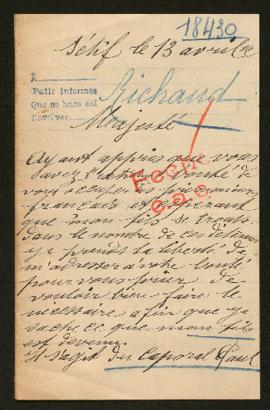 18430
Sétif le 13 avril
A
Pedir informes
Que se haga así
Devolver
Richaud
Majesté
Ayant appris que vous
avez
vous occuper des prisonniers
français et espérant
que mon fils se trouve
dans le nombre de ces détenus
je prends la liberté de
m'adresser à votre bonté
pour vous prier de
vouloir bien faire le
nécessaire afin que je
sache ce que mon fils
est devenu.
Il s'agit du Caporal Paul